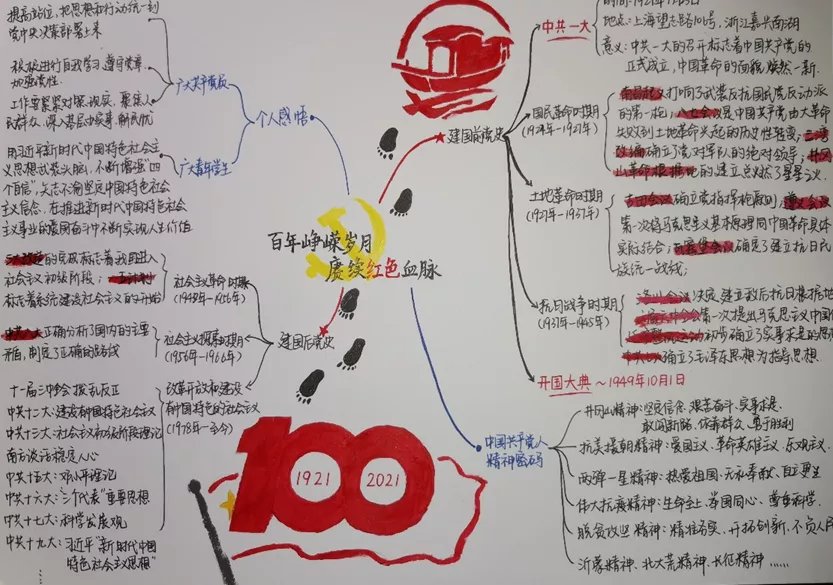 提高站位,把思想和行动统一到
党中央决策部署上来
积极进行自我学习 遵守党章
加强党性
广大共产党员
工作要紧密对接现实、聚焦人
民群众,深入基层办实事、解民忧
个人感悟
广大青年学生
用习近平新时代中国特色社会主
义思想武装头脑,不断增强“四
个自信”,矢志不渝坚定中国特色社会
主义信念,在推动新时代中国特色社会
主义事业的奋斗中不断实现人生价值
百年峥嵘岁月
赓续红色血脉
中共一大
地点:上海望志路106号,浙江嘉兴南湖
意义:中共一大的召开标志着中国共产党的
正式成立,中国革命的面貌焕然一新.
建国前党史
国民革命时期
(1924年-1927年)
南昌起义打响了武装反抗国民党反动派
的第一枪;八七会议是中国共产党由大革命
失败到土地革命兴起的历史性转变;三湾
改编确立了党对军队的绝对领导;井冈
山革命根据地的建立点燃了星星之
土地革命时期
(1927年-1937年)
古田会议确立党指挥枪原则;遵义会议
第一次将马克思主义基本原理同中国革命具体
实际结合;瓦窑堡会议确定了建立抗日民
族统一战线;
抗日战争时期
(1937年-1945年)
洛川会议决定建立敌后抗日根据地
第一次提出马克思主义中国
初步确立了实事求是的思
中共七大确立了毛泽东思想为指导思想
开国大典~1949年10月1日
建国后党史
社会主义革命时期
(1949年-1956年)
的完成标志着我国进入
社会主义初级阶段;一五计划
标志着系统建设社会主义的开始
社会主义探索时期
(1956年-1966年)
中共八大正确分析了国内的主要
矛盾,制定了正确的路线
改革开放和建设
有中国特色的社会主义
(1978年-至今)
十一届三中全会 拨乱反正
中共十二大:建设有中国特色社会主义
中共十三大:社会主义初级阶段理论
南方谈话稳定人心
中共十五大:邓小平理论
中共十六大:“三个代表”重要思想
中共十七大:科学发展观
中共十九大:习近平“新时代中国
特色社会主义思想”
中国共产党人
精神密码
井冈山精神:坚定信念、艰苦奋斗、实事求是、
敢闯新路、依靠群众、勇于胜利
抗美援朝精神:爱国主义、革命英雄主义、乐观主义、
两弹一星精神:热爱祖国、无私奉献、自立更生
伟大抗疫精神:生命至上、举国同心、尊重科学、
脱贫攻坚精神:精准务实、开拓创新、不负人民
沂蒙精神、北大荒精神、长征精神……
100
1921
2021